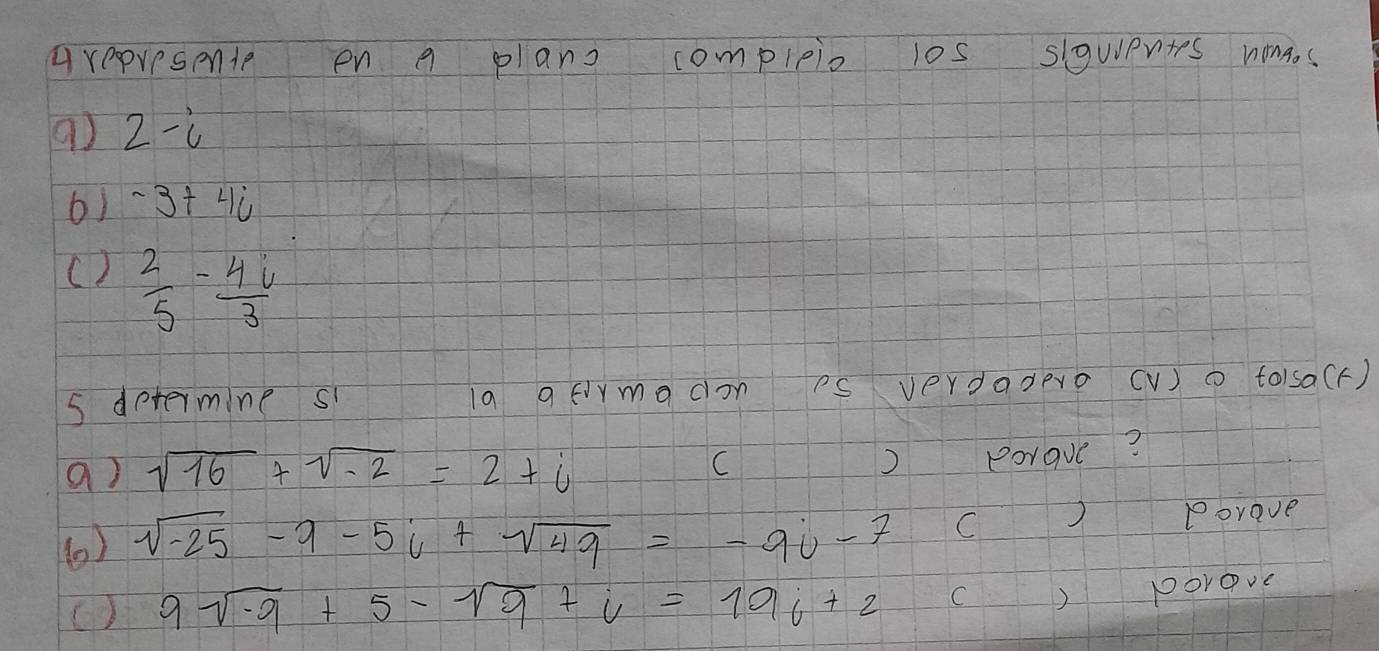 4 represente en a plano complejo los siguientes
a) 2-i
b) -3+4i
c) 2/5 - 4i/3
5 determine si la afirmación es verdadero (V) o falsa (F)
a) √16 + √-2 = 2 + i ( ) ¿ porque ?
b) √-25 - 9 - 5i + √49 = -9i - 7 ( ) porque
c) 9√-9 + 5 - √9 + i = 19i + 2 ( ) porque